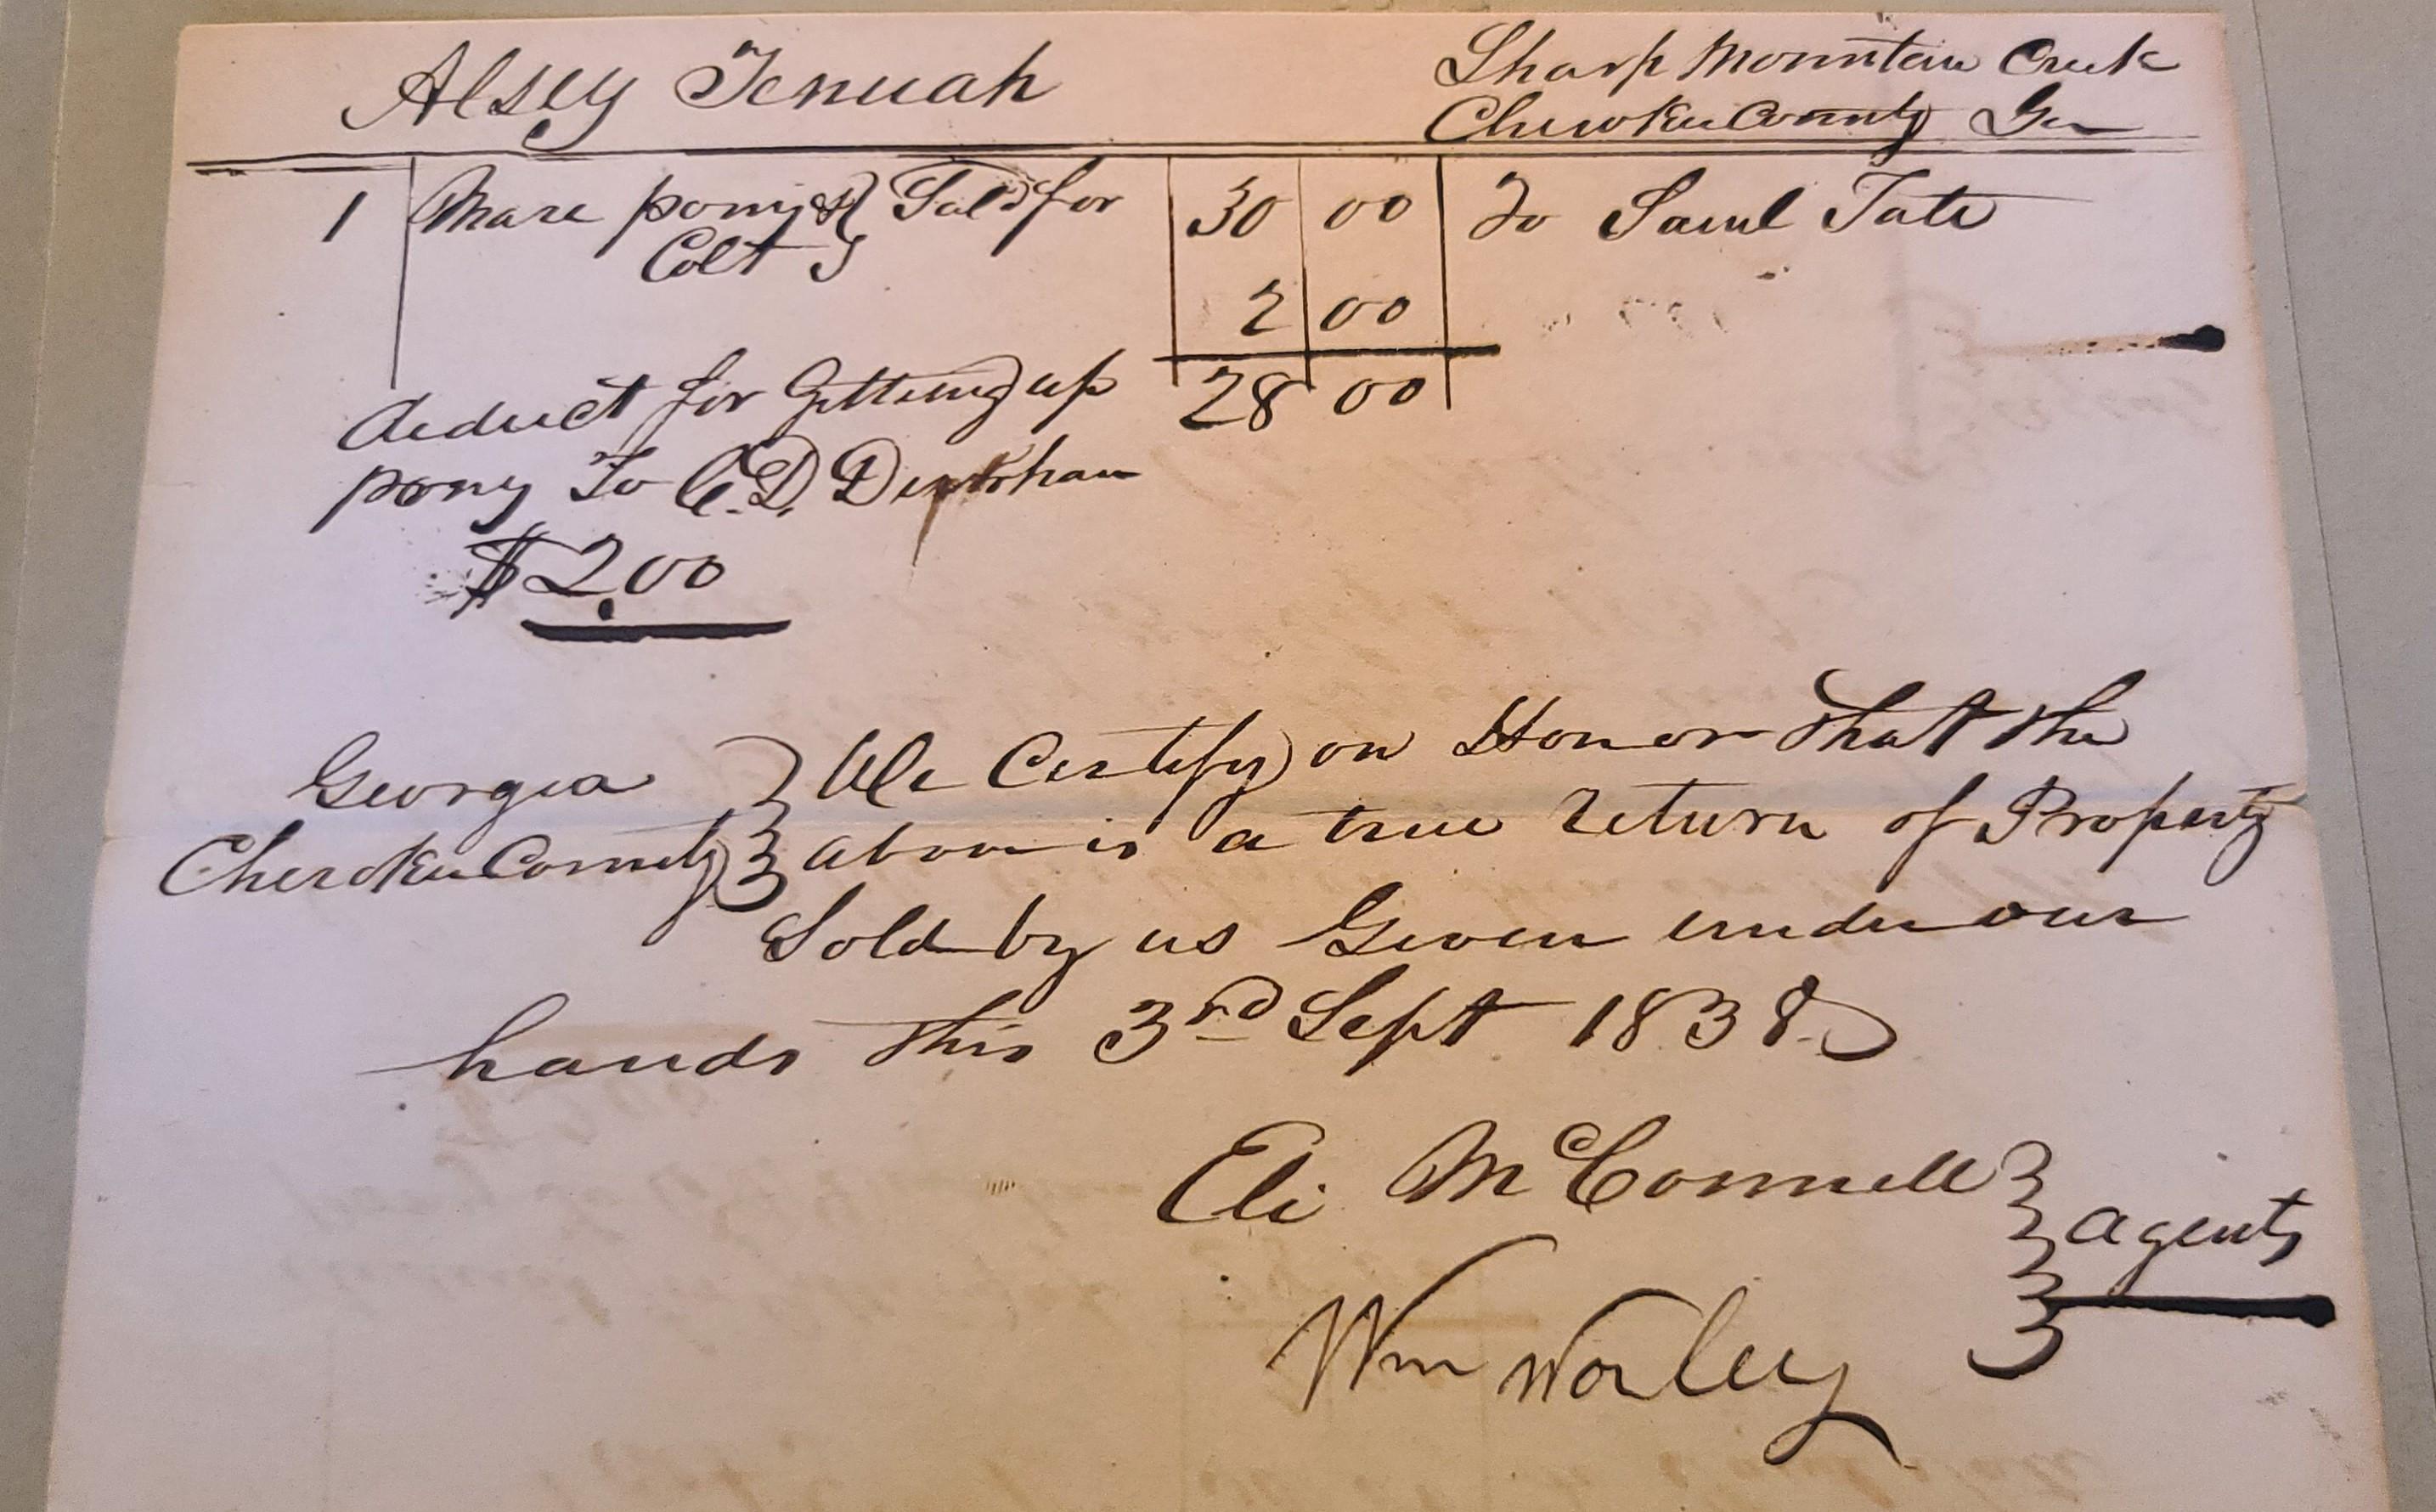 Alsey Tenuah
Sharp Mountain Creek
Cherokee County Ga
1 Mare pony & Sold for 30 00 To Saml Tate
Colt
2 00
28 00
deduct for Getting up
pony To C. D.
$2.00
Georgia We Certify on Honor that the
Cherokee County above is a true return of Property
Sold by us Given under our
hands this 3rd Sept 1838
Eli McConnell
agents
Wm Worley